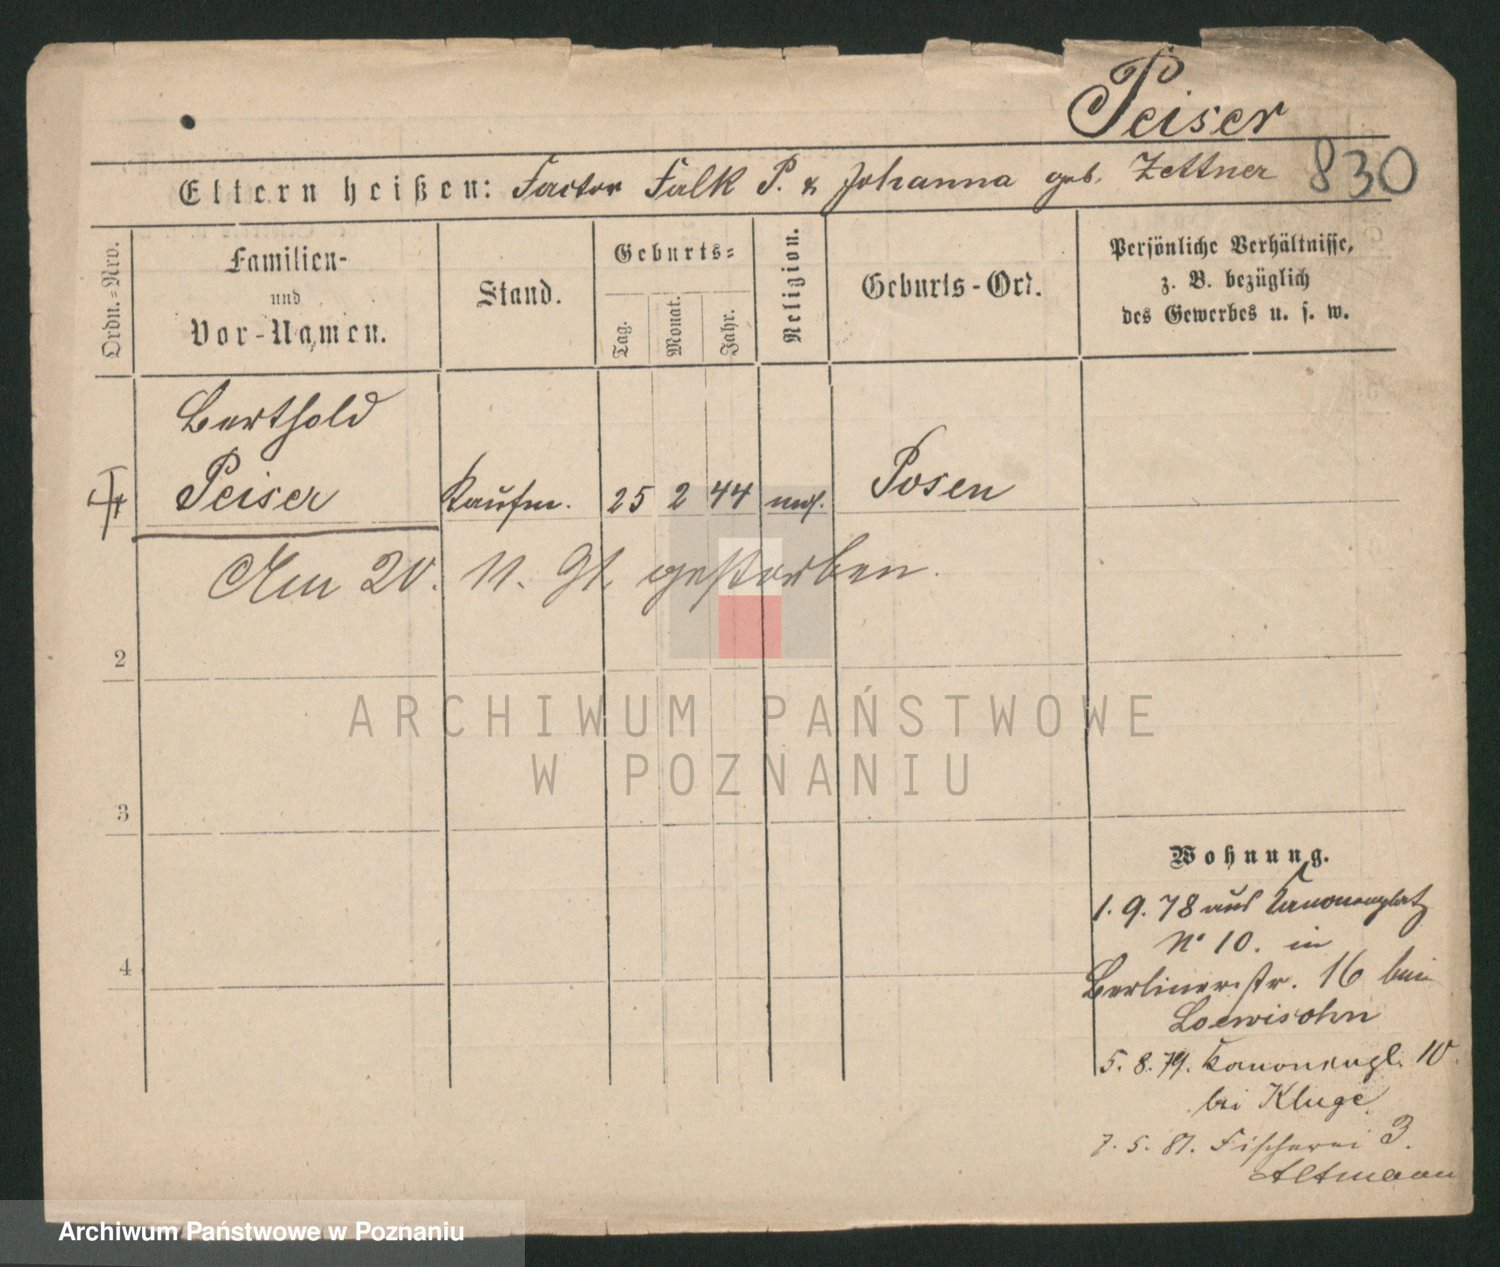 Peiser
830
Eltern heißen: Factor Falk P. & Johanna geb. Zettner
Ordn.-Nro.
Familien-
und
Vor-Namen.
Stand.
Geburts-
Tag.
Monat.
Jahr.
Religion.
Geburts-Ort.
Persönliche Verhältnisse,
z. B. bezüglich
des Gewerbes u. s. w.
Berthold
Peiser
Kaufm. 25 2 44 mos. Posen
Am 20. 11. 91 gestorben.
2
3
4
Wohnung.
1. 9. 78 aus Kanonenplatz
No 10. in
Berlinerstr. 16 bei
Loewisohn
5. 8. 79. Kanonenpl. 10
bei Kluge
7. 5. 81. Fischerei 3.
Altmann
ARCHIWUM PAŃSTWOWE
W POZNANIU
Archiwum Państwowe w Poznaniu